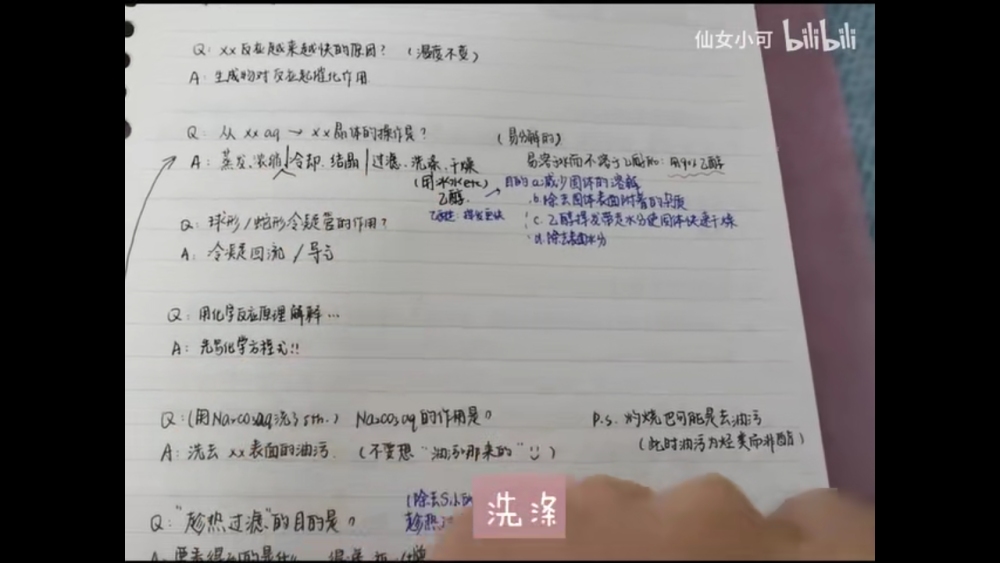 仙女小可 bilibili
Q: xx反应越来越快的原因? (温度不变)
A: 生成物对反应起催化作用
Q: 从xxaq→xx晶体的操作是? (易分解的)
A: 蒸发浓缩|冷却、结晶|过滤、洗涤、干燥
易溶于水而不溶于乙醇的:用90%乙醇
(用冰水etc.)
乙醇.
乙醚: 挥发更快
目的 a.减少固体的溶解
b.除去固体表面附着的杂质
c.乙醇挥发带走水分使固体快速干燥
d.除去表面水分
Q: 球形/蛇形冷凝管的作用?
A: 冷凝回流/导气
Q: 用化学反应原理解释…
A: 先写化学方程式!!
Q:(用Na₂CO₃aq洗了sth.) Na₂CO₃aq的作用是?
A: 洗去xx表面的油污. (不要想"油污哪来的")
P.S. 灼烧也可能是去油污
(此时油污为烃类而非酯)
(除去S小的
趁热
Q: "趁热过滤"的目的是?
洗涤